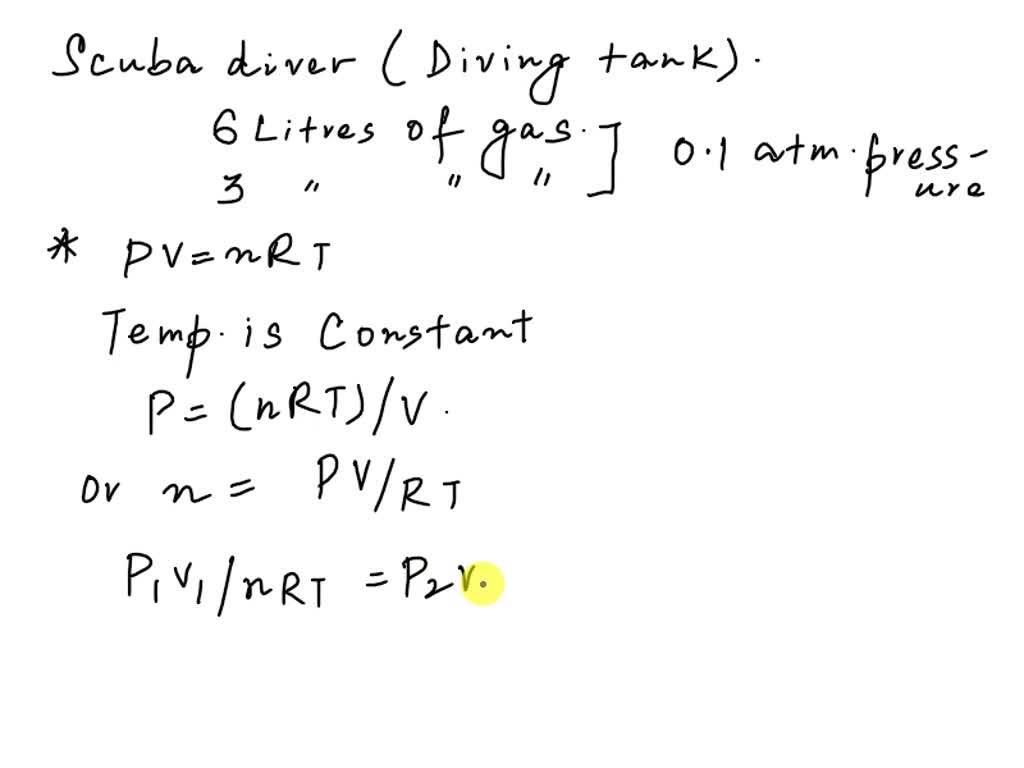 Scuba diver (Diving tank).
6 Litres of gas. ] 0.1 atm. press-
3 " " " ure
* PV = nRT
Temp. is Constant
P = (nRT)/V.
or n = PV/RT
P₁V₁/nRT = P₂V